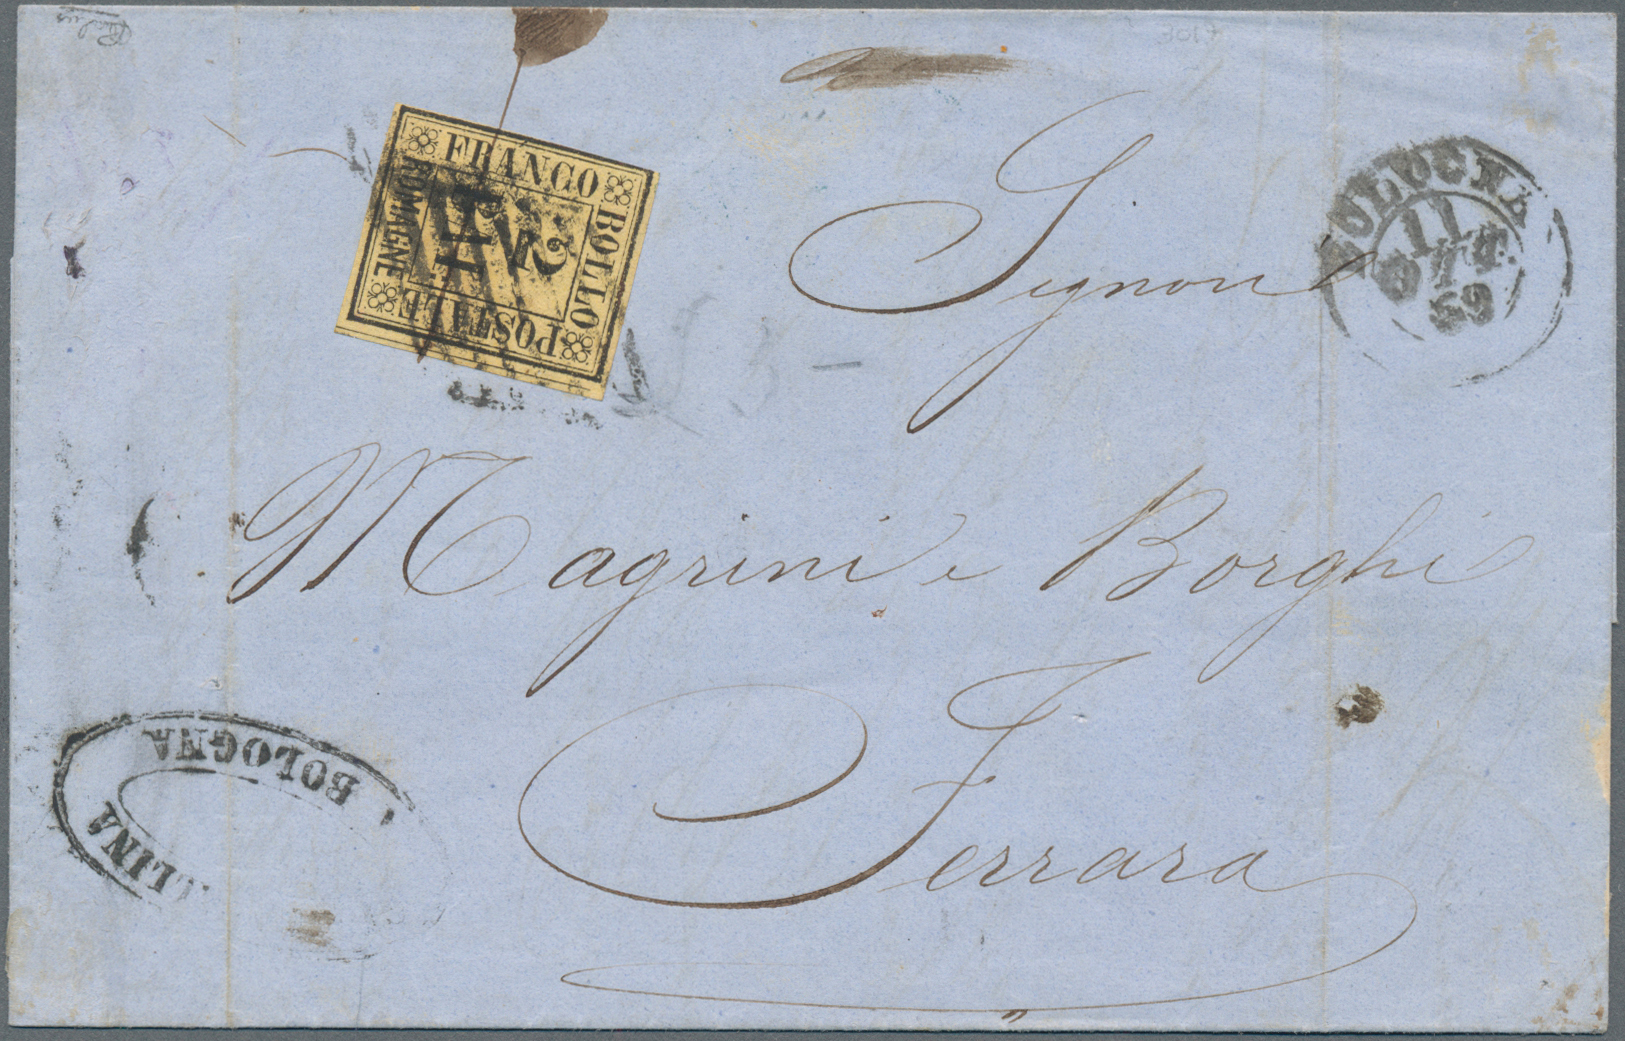 FRANCO
BOLLO
POSTALE
ROMAGNE
2
Signori
BOLOGNA
11
OTT.
59
Magrini e Borghi
BOLOGNA
LINA
Ferrara